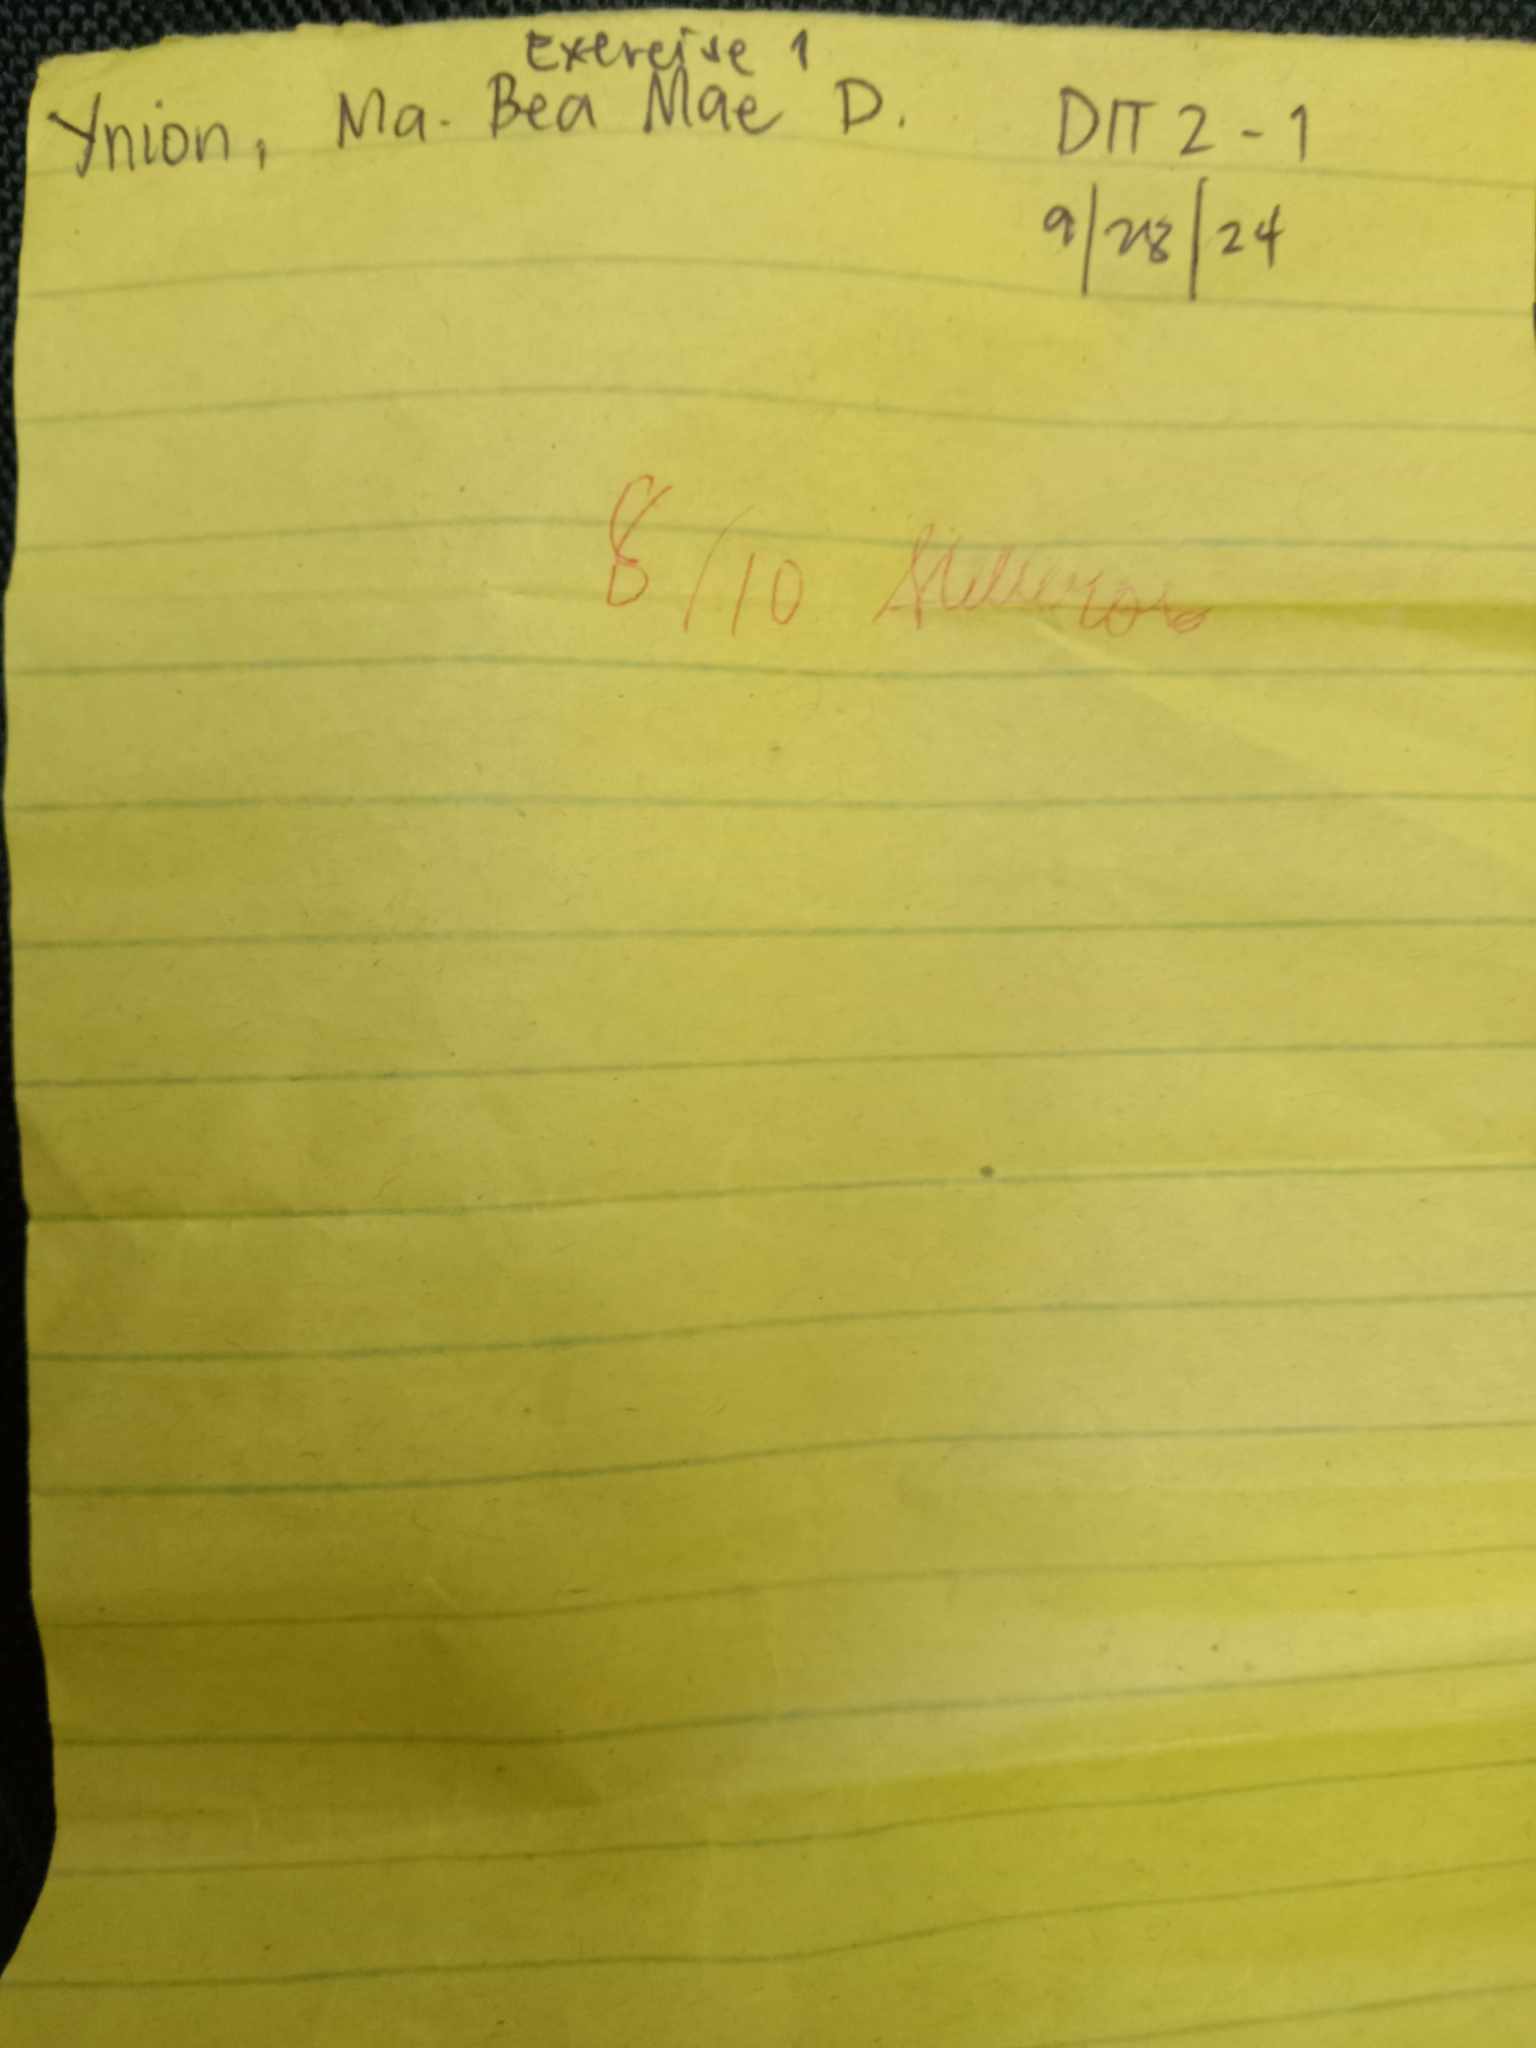 Exercise 1
Ynion, Ma. Bea Mae D. DIT 2-1
9/28/24
8/10